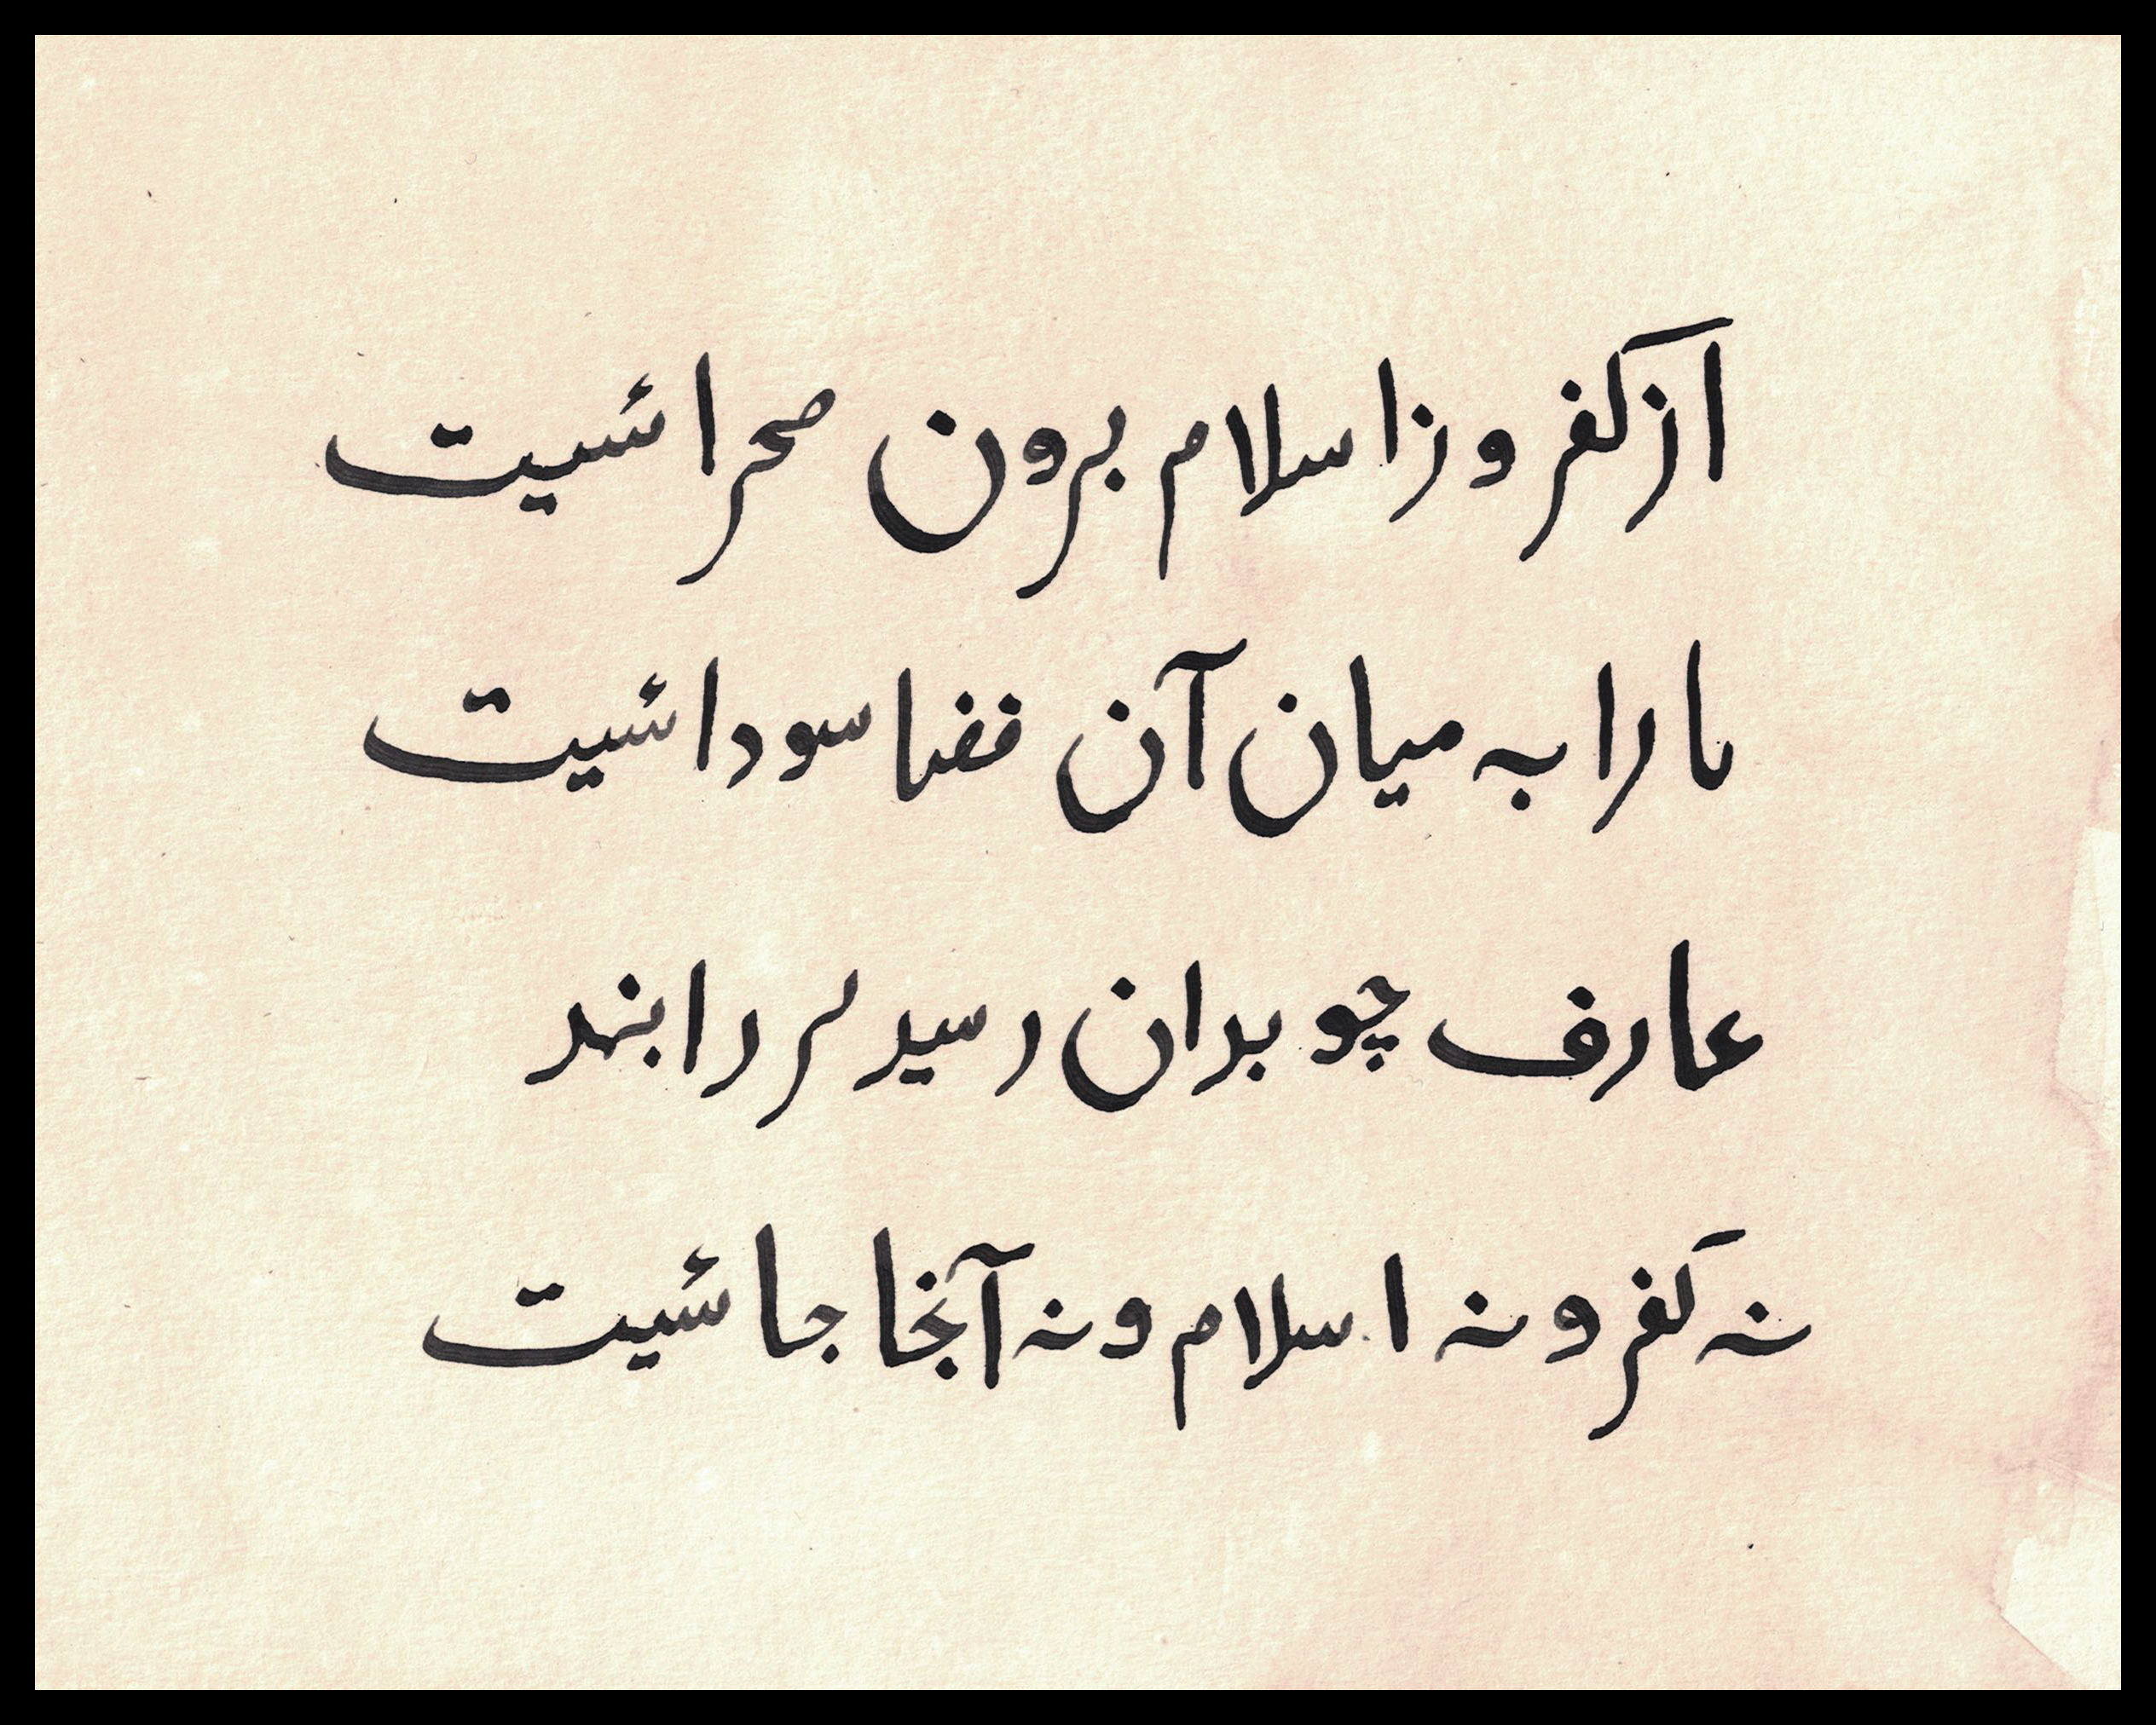 از کفر و ز اسلام برون صحرائیست
ما را به میان آن فضا سودائیست
عارف چو بدان رسید سر را بنهد
نه کفر و نه اسلام و نه آنجا جائیست